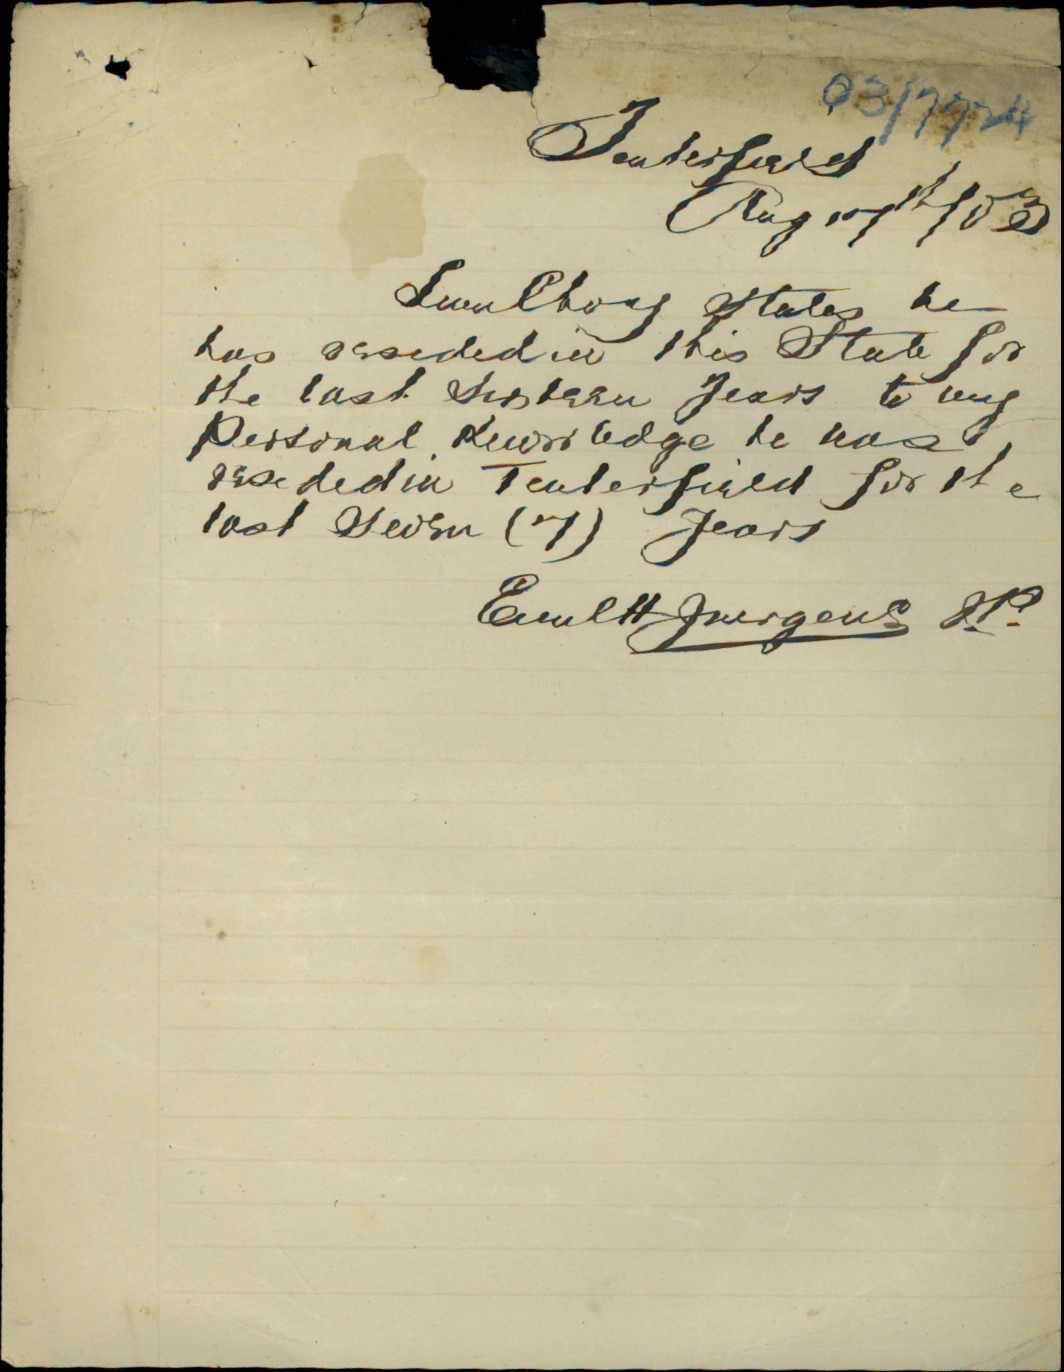 03/7724
Tenterfield
Aug 17th/03
Chong States he
has reseded in this State for
the last years to my
Personal Knowledge he has
reseded in Tenterfield for the
last Seven (7) years
Emil H Juergens J.P.